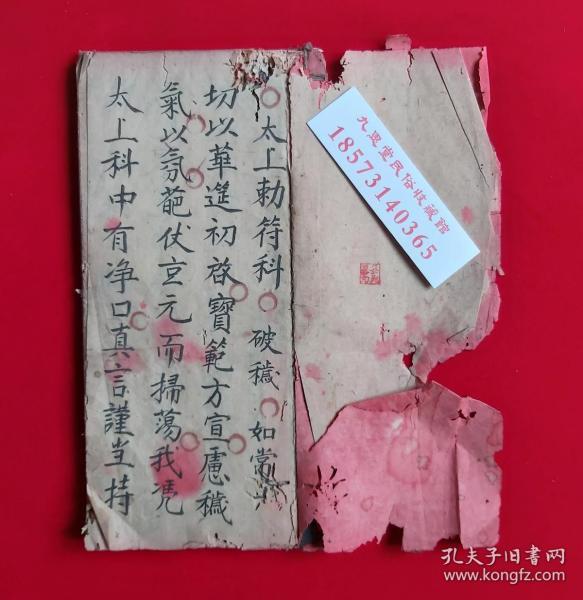 太上勅符科 破穢 如常
切以華筵初啓寶範方宣慮穢
氣以氛葩仗玄元而掃蕩我凴
太上科中有净口真言謹当持
九思堂民俗收藏館
18573140365
孔夫子旧书网
www.kongfz.com